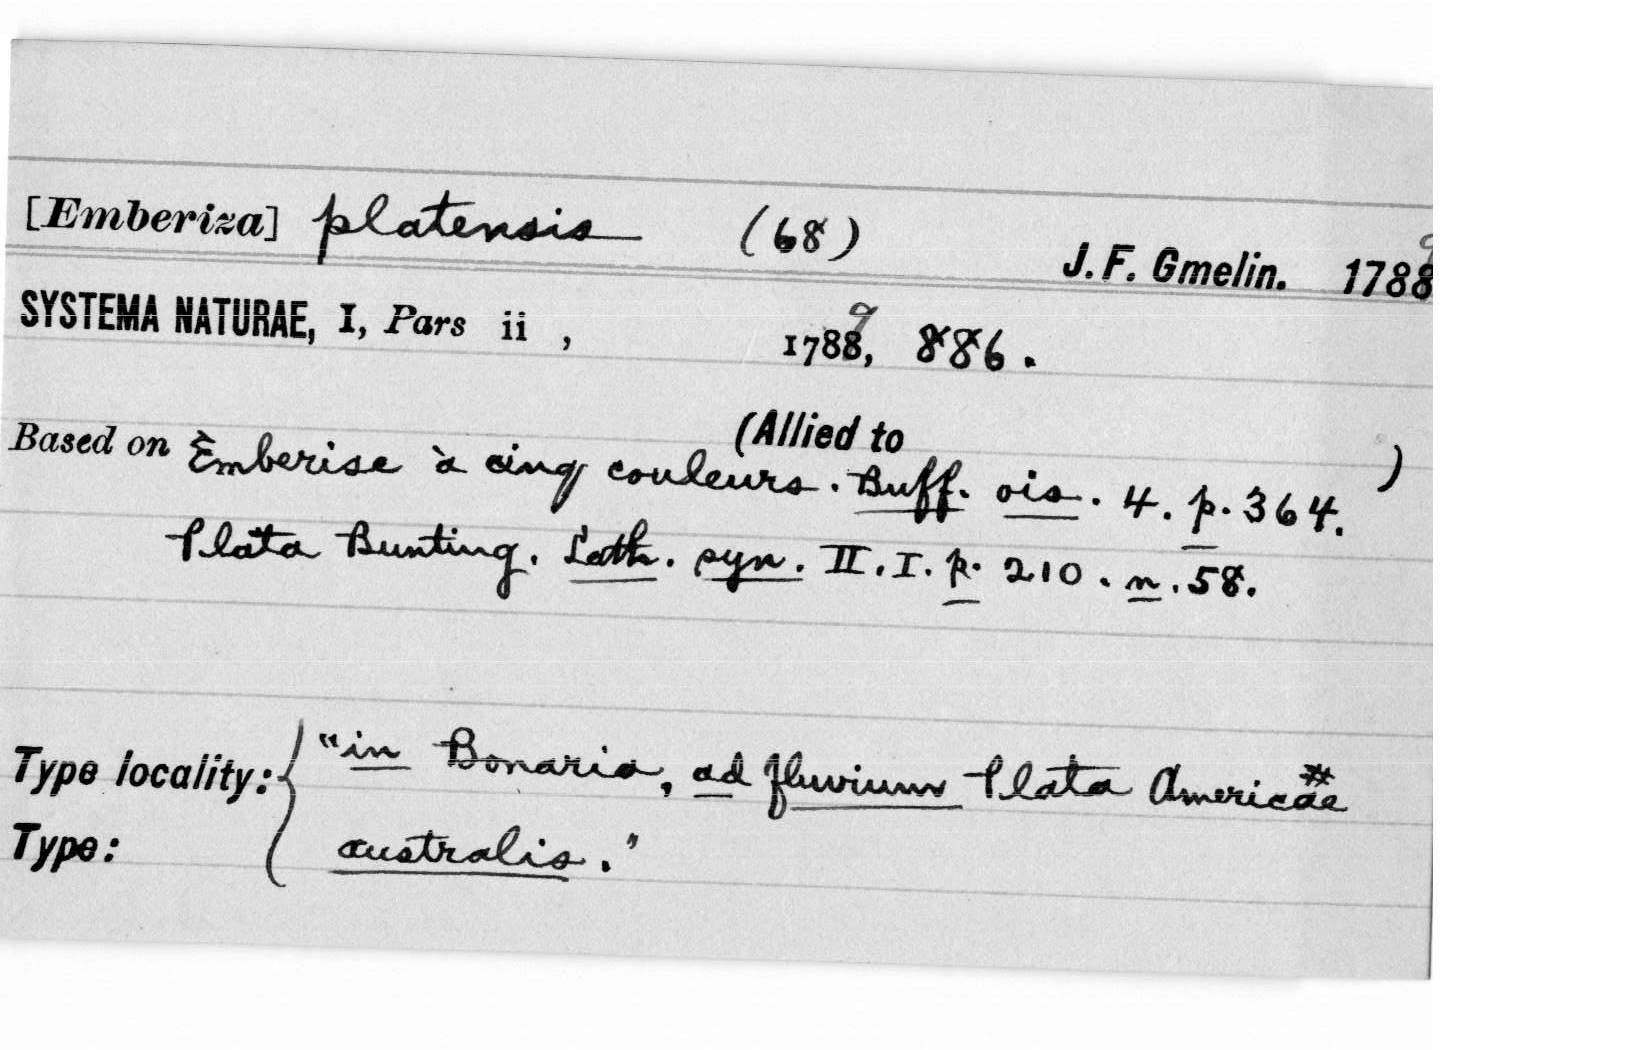 [Emberiza] platensis (68)
J. F. Gmelin. 1788 9
SYSTEMA NATURAE, I, Pars ii , 1788 9, 886.
(Allied to )
Based on Emberise à cinq couleurs. Buff. ois. 4. p. 364.
Plata Bunting. Lath. syn. II. I. p. 210. n. 58.
Type locality: { "in Bonaria, ad fluvium Plata Americae #
Type: australis."